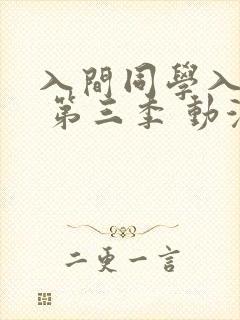 入間同學入
第三季 動
二更一言